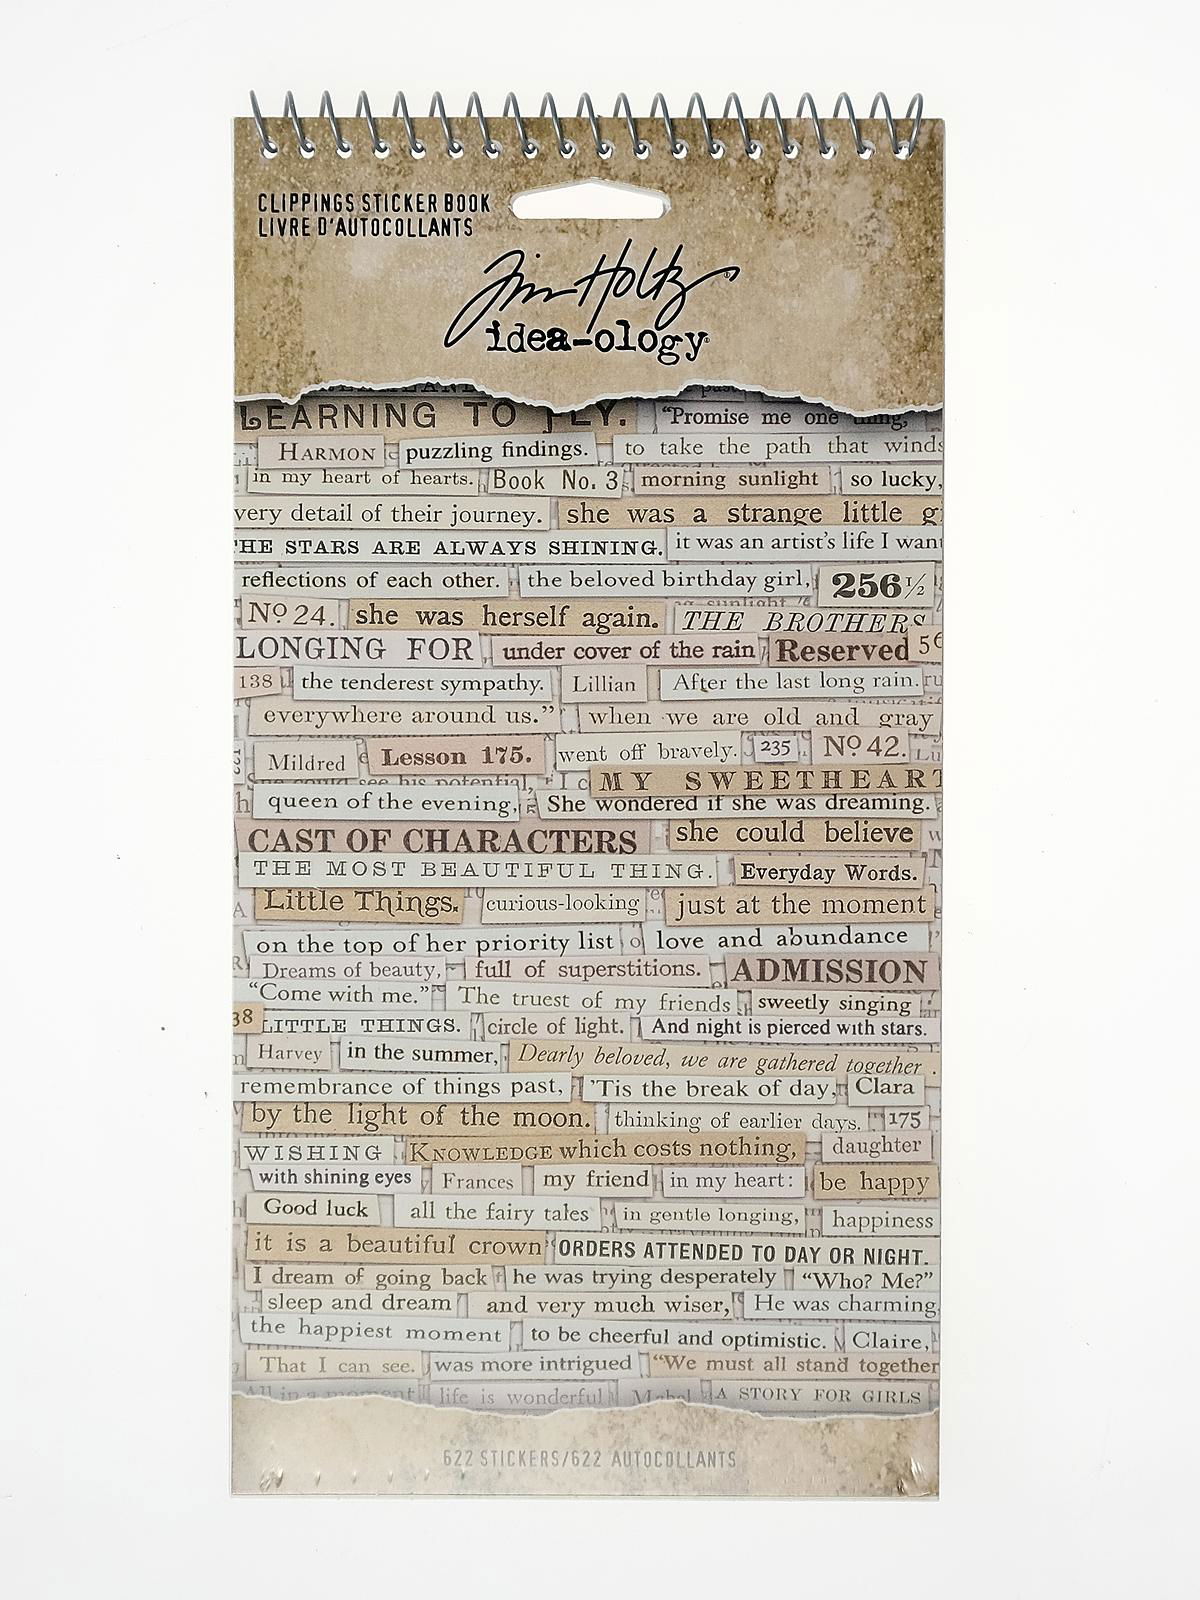 CLIPPINGS STICKER BOOK
LIVRE D'AUTOCOLLANTS
Tim Holtz
idea-ology
LEARNING TO FLY. "Promise me one thing,
HARMON puzzling findings. to take the path that winds
in my heart of hearts. Book No. 3 morning sunlight so lucky,
very detail of their journey. she was a strange little
THE STARS ARE ALWAYS SHINING. it was an artist's life I want
reflections of each other. the beloved birthday girl, 256 1/2
No 24. she was herself again. THE BROTHERS
LONGING FOR under cover of the rain Reserved 56
138 the tenderest sympathy. Lillian After the last long rain.
everywhere around us." when we are old and gray
Mildred Lesson 175. went off bravely. 235 No 42.
She could see his potential, MY SWEETHEART
queen of the evening, She wondered if she was dreaming.
CAST OF CHARACTERS she could believe
THE MOST BEAUTIFUL THING. Everyday Words.
Little Things. curious-looking just at the moment
on the top of her priority list love and abundance
Dreams of beauty, full of superstitions. ADMISSION
"Come with me." The truest of my friends sweetly singing
38 LITTLE THINGS. circle of light. And night is pierced with stars.
Harvey in the summer, Dearly beloved, we are gathered together
remembrance of things past, 'Tis the break of day, Clara
by the light of the moon. thinking of earlier days. 175
WISHING KNOWLEDGE which costs nothing, daughter
with shining eyes Frances my friend in my heart: be happy
Good luck all the fairy tales in gentle longing, happiness
it is a beautiful crown ORDERS ATTENDED TO DAY OR NIGHT.
I dream of going back he was trying desperately "Who? Me?"
sleep and dream and very much wiser, He was charming
the happiest moment to be cheerful and optimistic. Claire,
That I can see. was more intrigued "We must all stand together
All in a moment life is wonderful Mabel A STORY FOR GIRLS
622 STICKERS/622 AUTOCOLLANTS